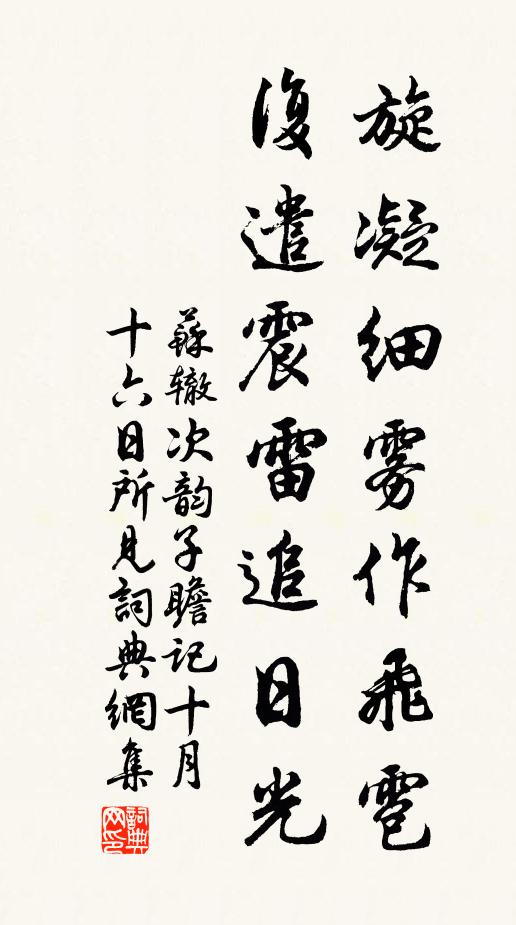 旋凝細雾作飛雹
復遣震雷追日光
蘇辙次韵子瞻記十月
十六日所見詞典網集
詞典网印